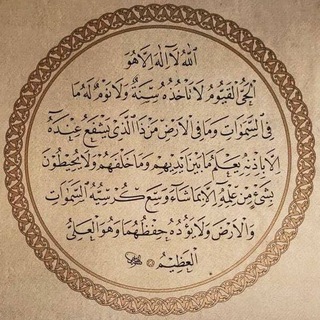 ٱللَّهُ لَآ إِلَٰهَ إِلَّا هُوَ
ٱلْحَيُّ ٱلْقَيُّومُ لَا تَأْخُذُهُ سِنَةٌ وَلَا نَوْمٌ لَهُ مَا
فِي ٱلسَّمَوَاتِ وَمَا فِي ٱلْأَرْضِ مَنْ ذَا ٱلَّذِي يَشْفَعُ عِنْدَهُ
إِلَّا بِإِذْنِهِ يَعْلَمُ مَا بَيْنَ أَيْدِيهِمْ وَمَا خَلْفَهُمْ وَلَا يُحِيطُونَ
بِشَيْءٍ مِنْ عِلْمِهِ إِلَّا بِمَا شَآءَ وَسِعَ كُرْسِيُّهُ ٱلسَّمَوَاتِ
وَٱلْأَرْضَ وَلَا يَؤُدُهُ حِفْظُهُمَا وَهُوَ ٱلْعَلِيُّ
ٱلْعَظِيمُ